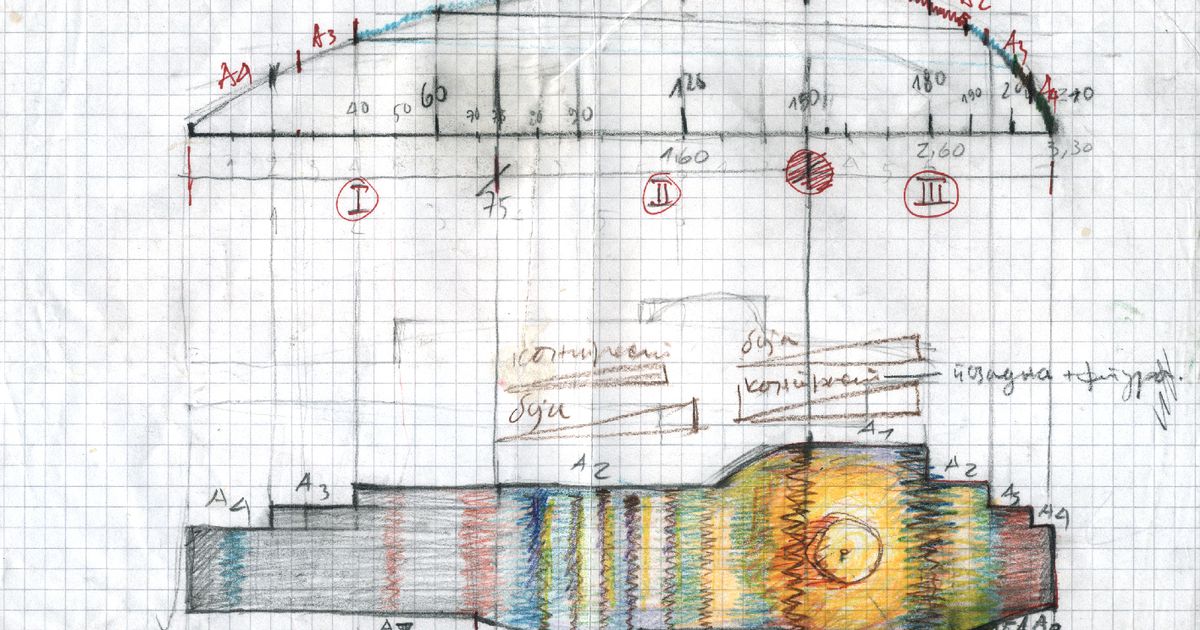 A2
A3
A3
A4
A4 240
40 50 60 70 75 80 90 120 150 180 190
1 2 3 1,60 4 5 2,60 3,30
I II III
75
контраст
боја
боја
контраст
позадина + фигура.
A1
A2
A2
A3
A3
A4
A4
P